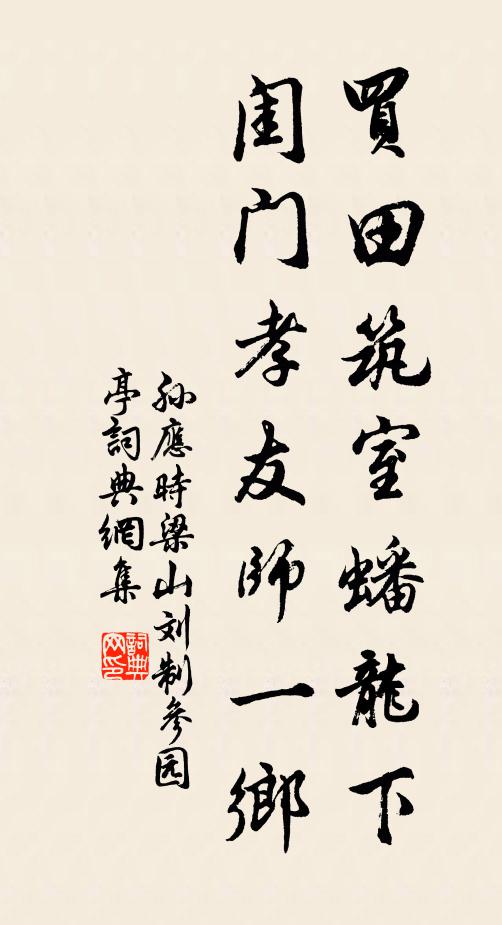 買田筑室蟠龍下
闺门孝友師一鄉
孙應時梁山刘制參园
亭詞典網集
詞典
网印